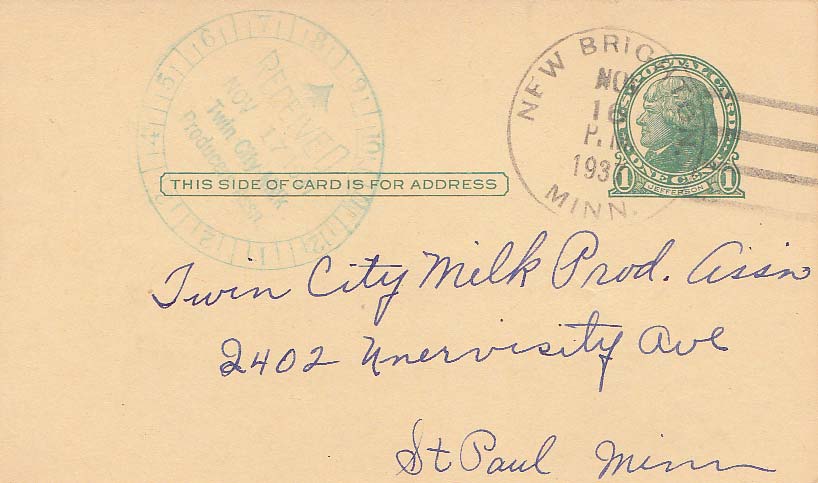 7 8 9 10 11 12 1 2 3 4 5 6
RECEIVED
NOV 17
Twin City Milk
Producers Assn.
NEW BRIGHTON
NO
16
P.M
193
MINN.
U.S. POSTAL CARD
ONE CENT
1 JEFFERSON 1
THIS SIDE OF CARD IS FOR ADDRESS
Twin City Milk Prod. Assn
2402 Unervisity Ave
St Paul Minn